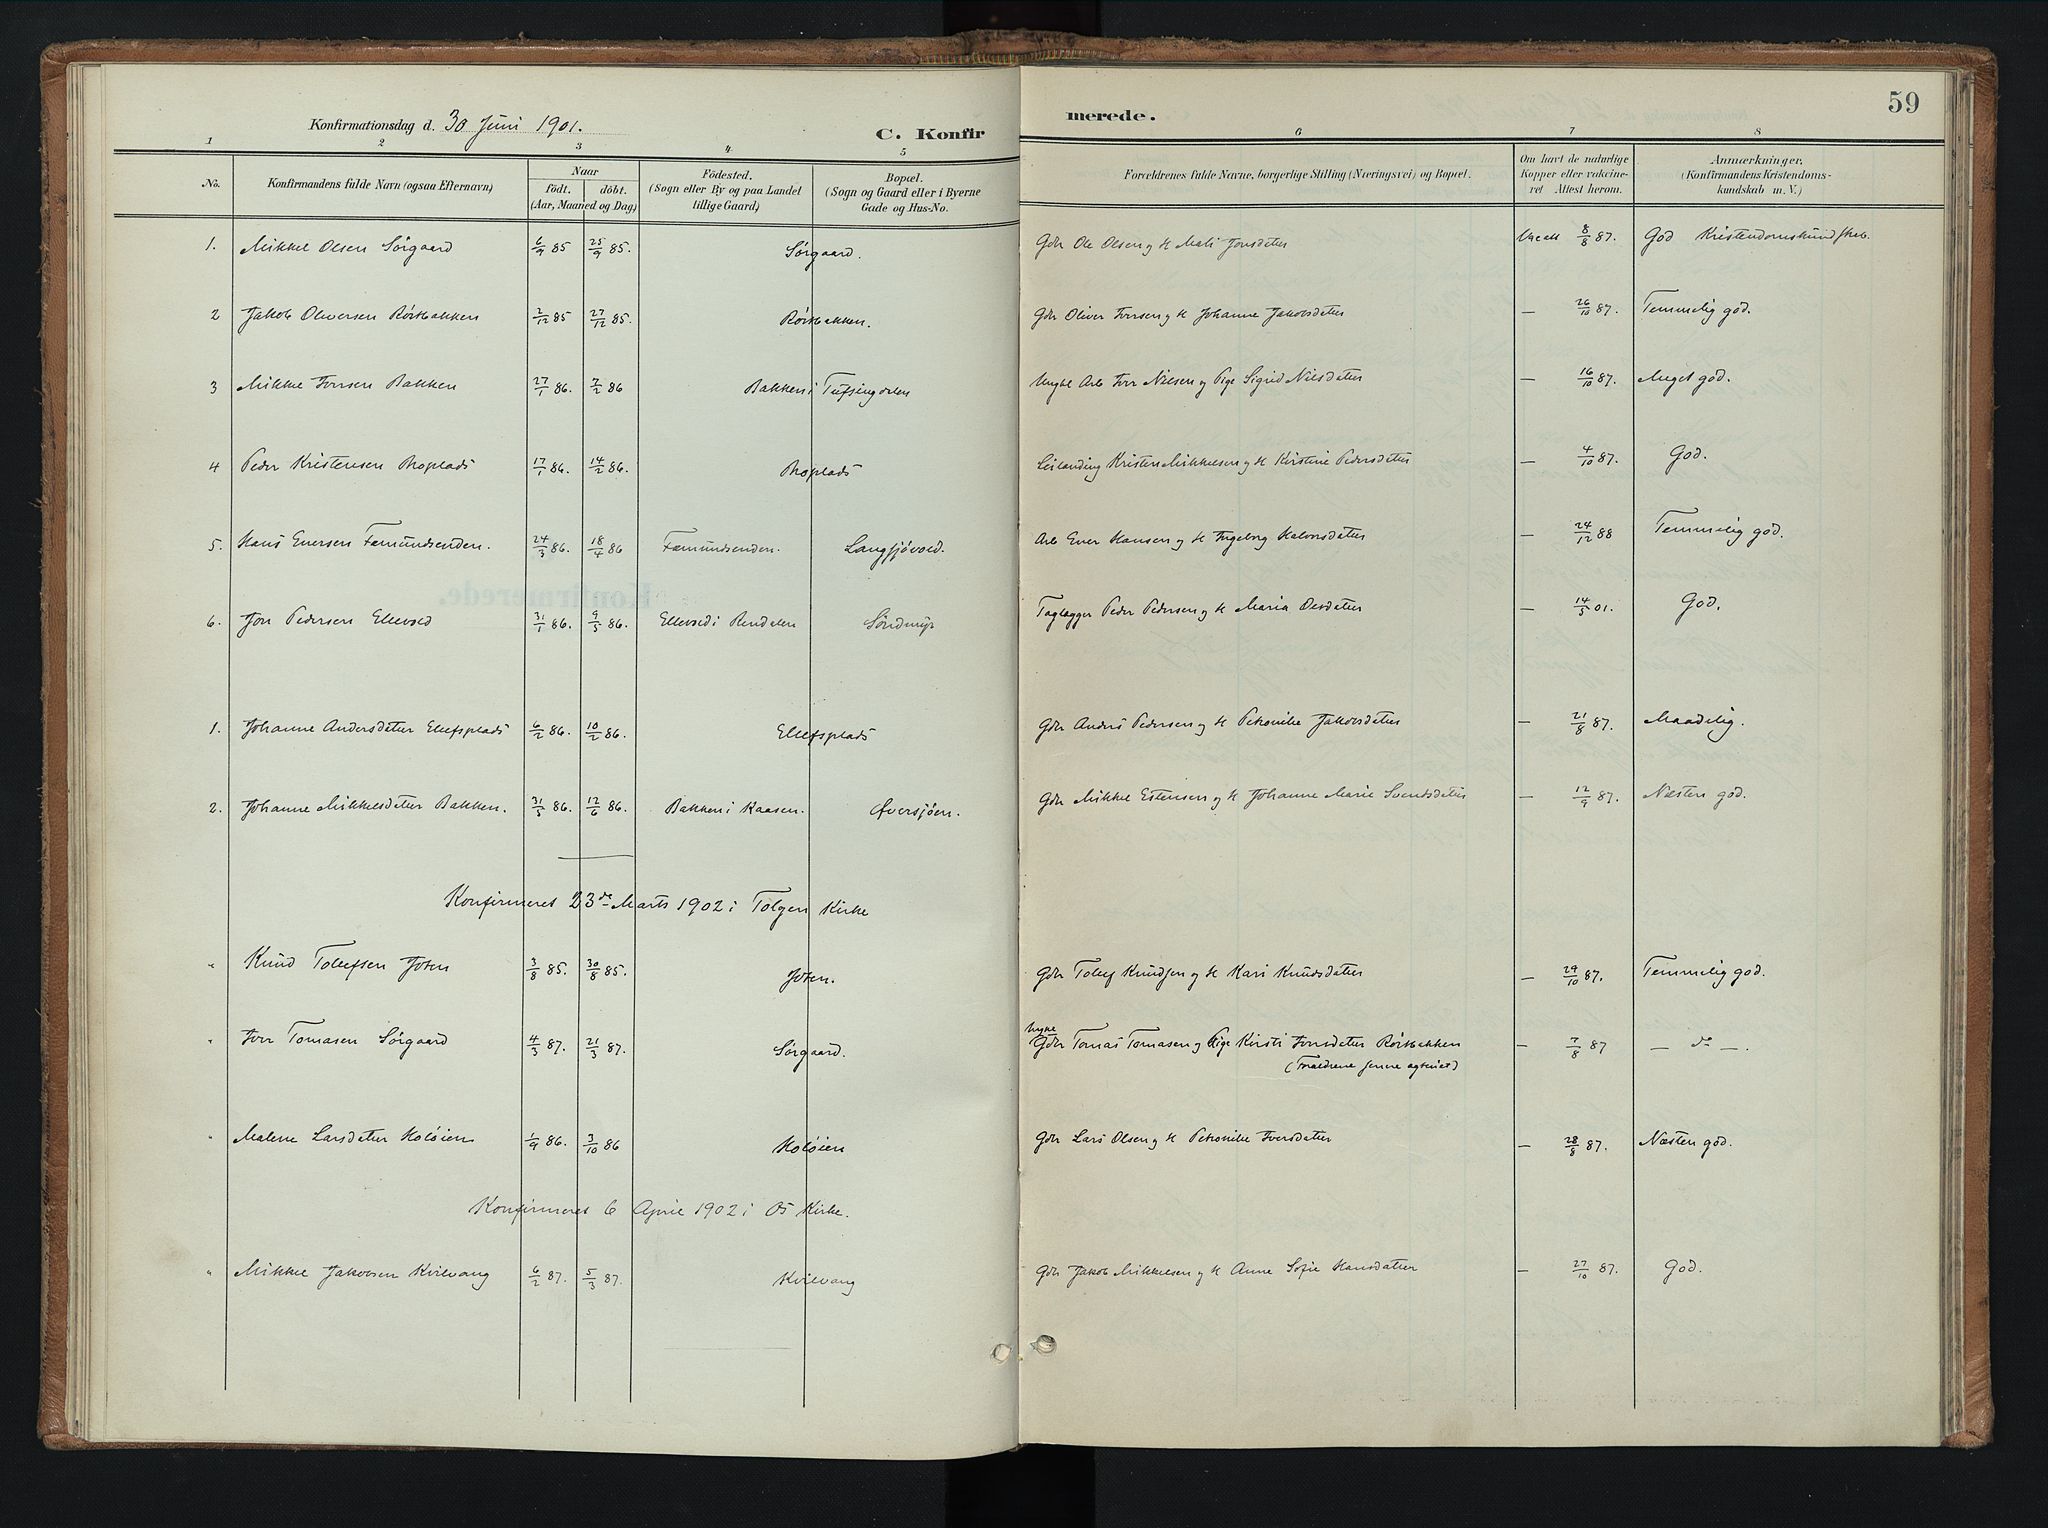 59
Konfirmationsdag d. 30 Juni 1901.
C. Konfirmerede.
1 2 3 4 5 6 7 8
No. Konfirmandens fulde Navn (ogsaa Efternavn) Naar födt. döbt. (Aar, Maaned og Dag) Födested. (Sogn eller By og paa Landet tillige Gaard) Bopæl. (Sogn og Gaard eller i Byerne Gade og Hus-No. Forældrenes fulde Navne, borgerlige Stilling (Næringsvei) og Bopæl. Om havt de naturlige Kopper eller vakcineret Attest herom. Anmærkninger. (Konfirmandens Kristendomskundskab m. V.)
1. Mikkel Olsen Sörgaard 6/9 85 25/9 85. Sörgaard. Gdr Ole Olsen og H Mali Jonsdatter 8/8 87. God Kristendomskundskab.
2 Jakob Oliversen Rörbakken 2/12 85 27/12 85. Rörbakken. Gdr Oliver Iversen og H Johanne Jakobsdatter — 26/10 87. Temmelig god.
3 Mikkel Iversen Bakken 27/1 86. 7/2 86 Bakken i Tufsingdalen Ungkl Arb Iver Nilsen og Pige Sigrid Nilsdatter — 16/10 87. Meget god.
4 Peder Kristensen Moplads 17/1 86. 14/2 86. Moplads Leilænding Kristen Mikkelsen og H Kirstine Pedersdatter — 4/10 87. God.
5. Hans Evensen Fæmundsenden. 24/3 86. 18/4 86 Fæmundsenden. Langsjövold. Arb Even Hansen og H Ingeborg Halvorsdatter — 24/12 88 Temmelig god.
6. Jon Pedersen Ellevold 31/1 86. 9/5 86. Ellevold i Rendalen Söndmyr Taglægger Peder Pedersen og H Maria Olesdatter — 14/5 01. God.
1. Johanne Andersdatter Ellefsplads 6/2 86. 10/2 86. Ellefsplads Gdr Anders Pedersen og H Petronike Jakobsdatter — 21/8 87. Maadelig.
2. Johanne Mikkelsdatter Bakken. 31/5 86. 12/6 86. Bakken i Kaasen. Översjöen. Gdr Mikkel Estensen og H Johanne Marie Svendsdatter — 12/9 87. Næsten god.
Konfirmeret 23de Marts 1902 i Tolgen Kirke
" Knud Tollefsen Joten 3/8 85. 30/8 85. Joten. Gdr Tollef Knudsen og H Kari Knudsdatter — 29/10 87. Temmelig god.
" Iver Tomasen Sörgaard 4/3 87. 21/3 87. Sörgaard. Gdr Tomas Tomasen og Pige Kirsti Iversdatter Rörbakken — 7/8 87 — do —.
" Malene Larsdatter Holöien 1/9 86. 3/10 86 Holöien Gdr Lars Olsen og H Petronike Iversdatter — 28/8 87. Næsten god.
Konfirmeret 6 April 1902 i Os Kirke.
" Mikkel Jakobsen Kvilvang 6/2 87. 5/3 87. Kvilvang Gdr Jakob Mikkelsen og H Anne Sofie Hansdatter — 27/10 87. God.